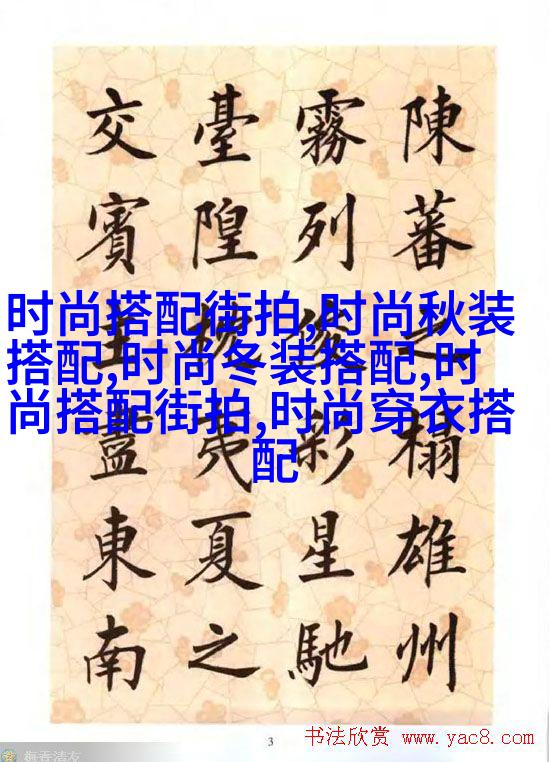 陳蕃之榻雄州
霧列俊彩星馳
臺隍枕夷夏之
交賓主盡東南
时尚搭配街拍,时尚秋装
搭配,时尚冬装搭配,时
尚搭配街拍,时尚穿衣搭
配
3
书法欣赏 www.yac8.com